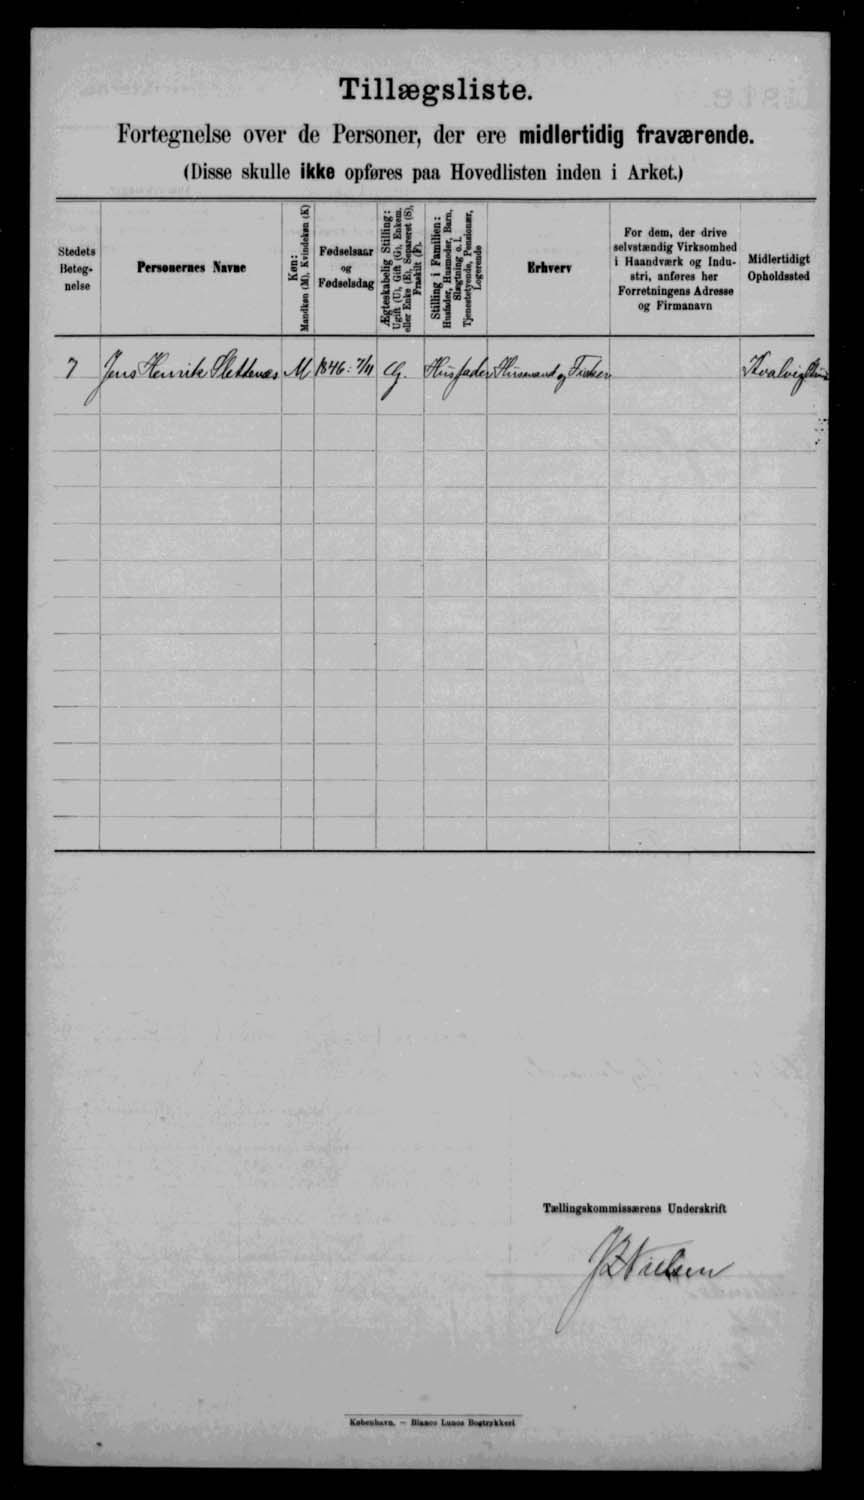 Tillægsliste.
Fortegnelse over de Personer, der ere midlertidig fraværende.
(Disse skulle ikke opføres paa Hovedlisten inden i Arket.)
Stedets
Beteg-
nelse
Personernes Navne
Køn:
Mandkøn (M), Kvindekøn (K)
Fødselsaar
og
Fødselsdag
Ægteskabelig Stilling:
Ugift (U), Gift (G), Enkem.
eller Enke (E), Separeret (S),
Fraskilt (F).
Stilling i Familien:
Husfader, Husmoder, Barn,
Slægtning o. l.
Tjenestetyende, Pensionær,
Logerende
Erhverv
For dem, der drive
selvstændig Virksomhed
i Haandværk og Indu-
stri, anføres her
Forretningens Adresse
og Firmanavn
Midlertidigt
Opholdssted
7 Jens Henrik Slettenæs M 1846: 7/11 G. Husfader Husmand og Fisker Kvalvig
Tællingskommissærens Underskrift
J Nielsen
København. — Bianco Lunos Bogtrykkeri